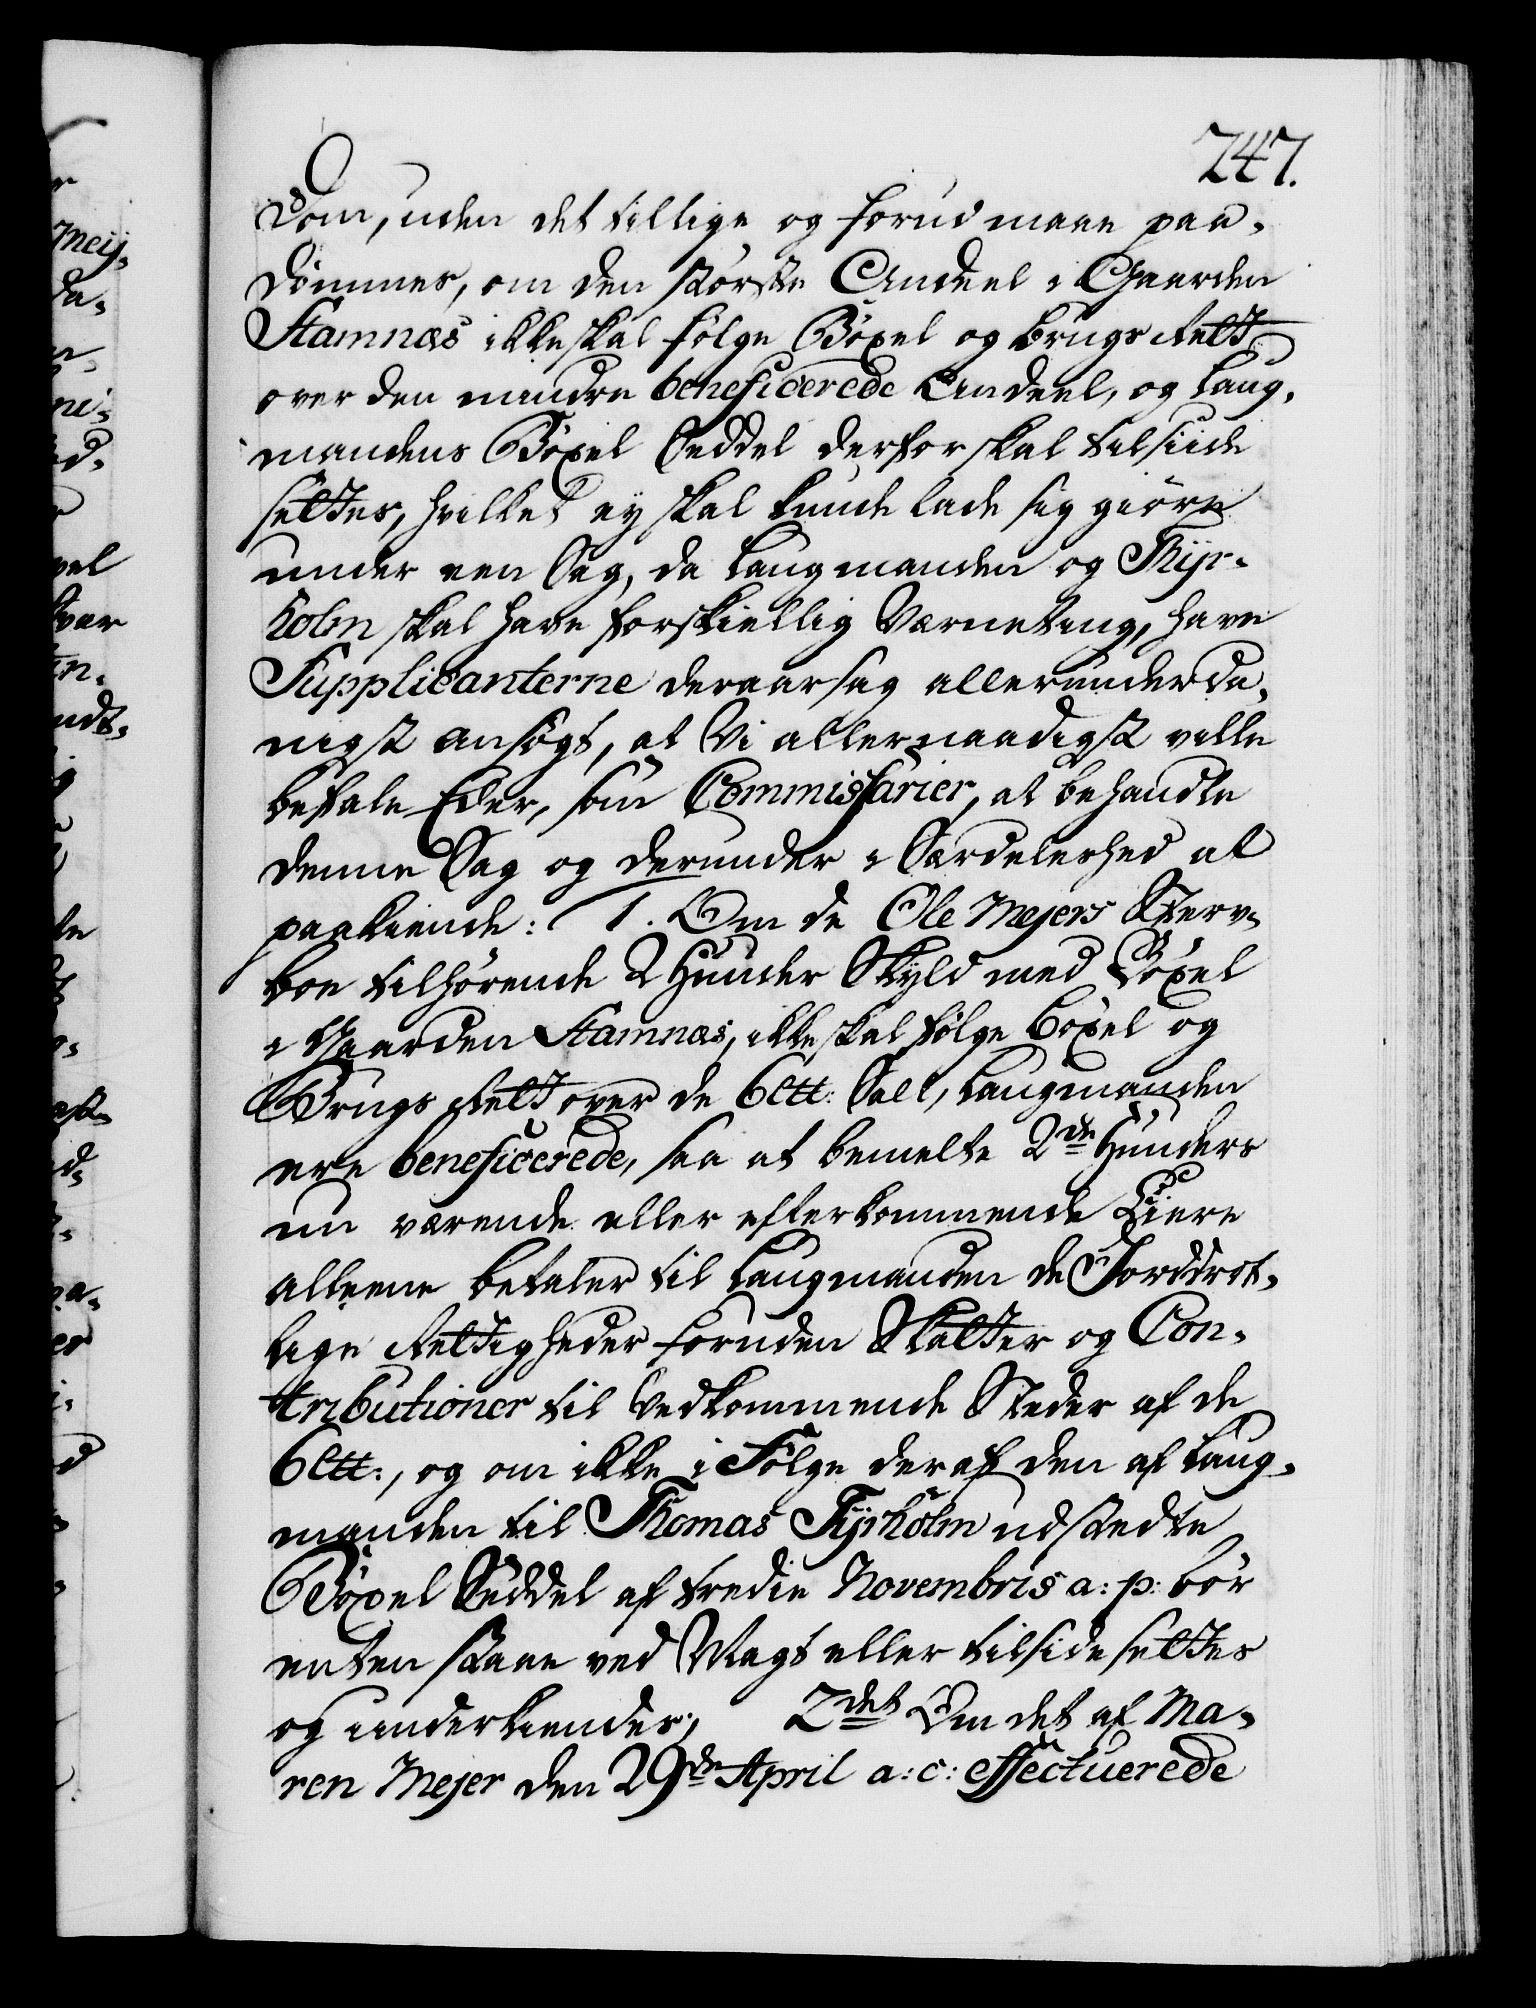 747.
Dom, uden det tillige og forud maae paa-
dömmes, om den störste Andeel i Gaarden
Stamnæs ikke skal fölge Böxel og brugs Rett
over den mindre beneficerede Andeel, og Laug-
mandens Böxel Seddel derfor skal tilsiide
settes, hvilket ey skal kunde lade sig giöre
under een Sag, da Laugmanden og Thyr-
holm skal have forskiellig Værneting, have
Supplicanterne deraarsag allerunderda-
nigst ansögt, at Vi allernaadigst ville
befale Eder, som Commissarier, at behandle
denne Sag og derunder i Særdeleshed at
paakiende: 1. Om de Ole Mejers Sterv-
boe tilhörende 2 Hunder Skyld med Böxel
i Gaarden Stamnæs, ikke skal fölge böxel og
Brugs Rett over de 6 Ltt: Sall, Laugmanden
ere beneficerede, saa at bemelte 2de Hunders
nu værende eller efterkommende Eiere
alleene betaler til Laugmanden de Jorddrot-
lige Rettigheder foruden Skatter og Con-
tributioner til Vedkommende Steder af de
6 Ltt:, og om ikke i Fölge deraf den af Laug-
manden til Thomas Tyrholm udstedte
Böxel Seddel af tredie Novembris a: p: bör
enten staae ved Magt eller tilside settes
og underkiendes; 2det Om det af Ma-
ren Mejer den 29de April a: c: effectuerede
Meij-
da-